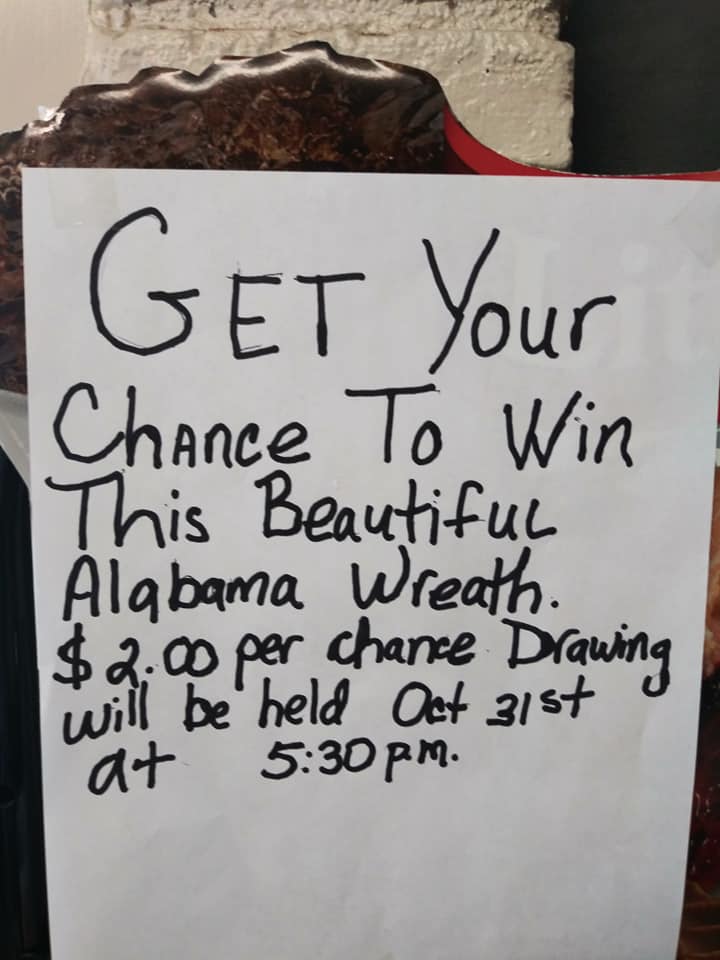 GET Your
Chance To Win
This Beautiful
Alabama Wreath.
$2.00 per chance Drawing
will be held Oct 31st
at 5:30 pm.